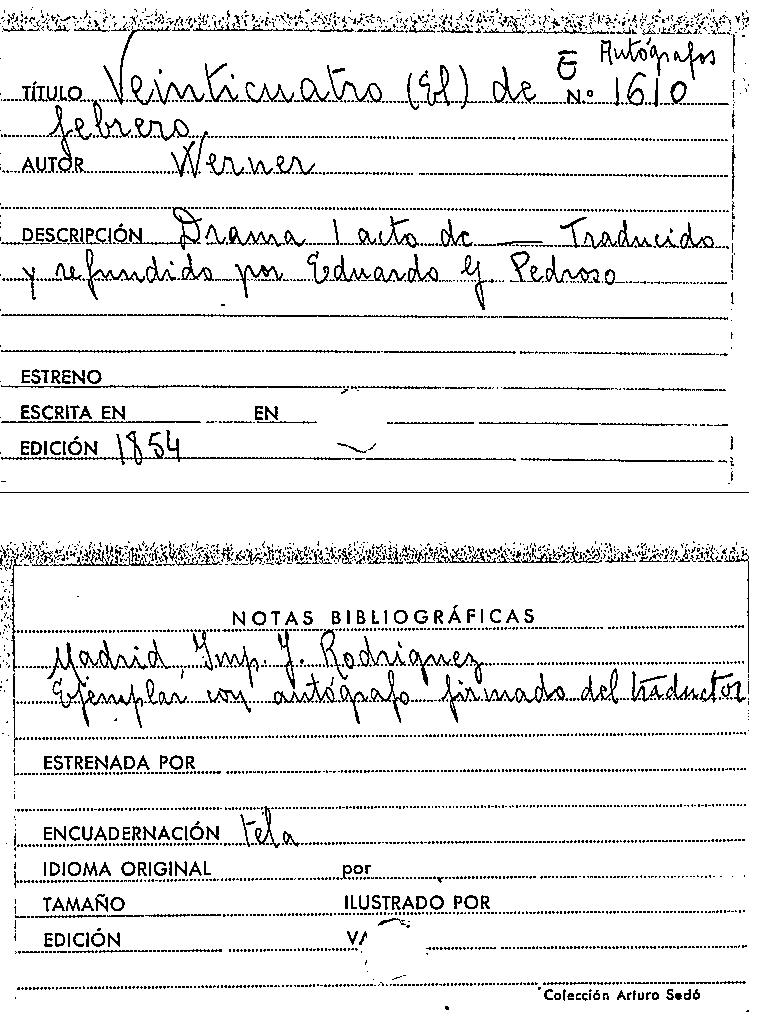 Ē Autógrafos
TÍTULO Veinticuatro (El) de N.º 1610
febrero
AUTOR Werner
DESCRIPCIÓN Drama 1 acto de — Traducido
y refundido por Eduardo G Pedroso
ESTRENO
ESCRITA EN EN
EDICIÓN 1854
NOTAS BIBLIOGRÁFICAS
Madrid, Imp. J. Rodriguez
Ejemplar con autógrafo firmado del traductor
ESTRENADA POR
ENCUADERNACIÓN tela
IDIOMA ORIGINAL por
TAMAÑO ILUSTRADO POR
EDICIÓN
Colección Arturo Sedó